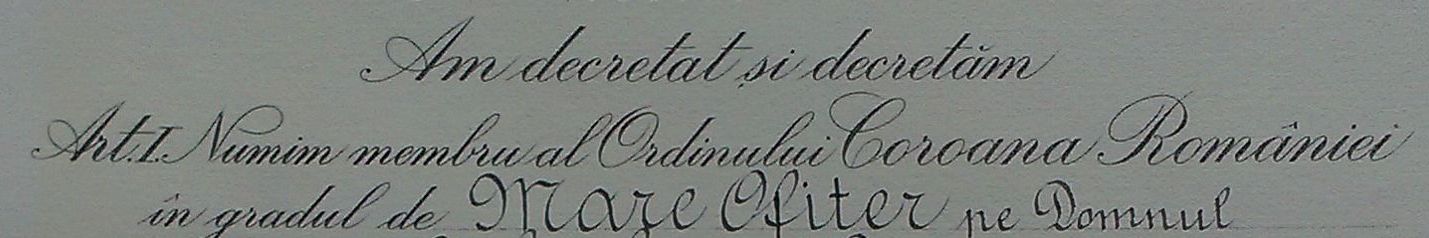 Am decretat și decretăm
Art. I. Numim membru al Ordinului Coroana României
în gradul de Mare Ofiter pe Domnul